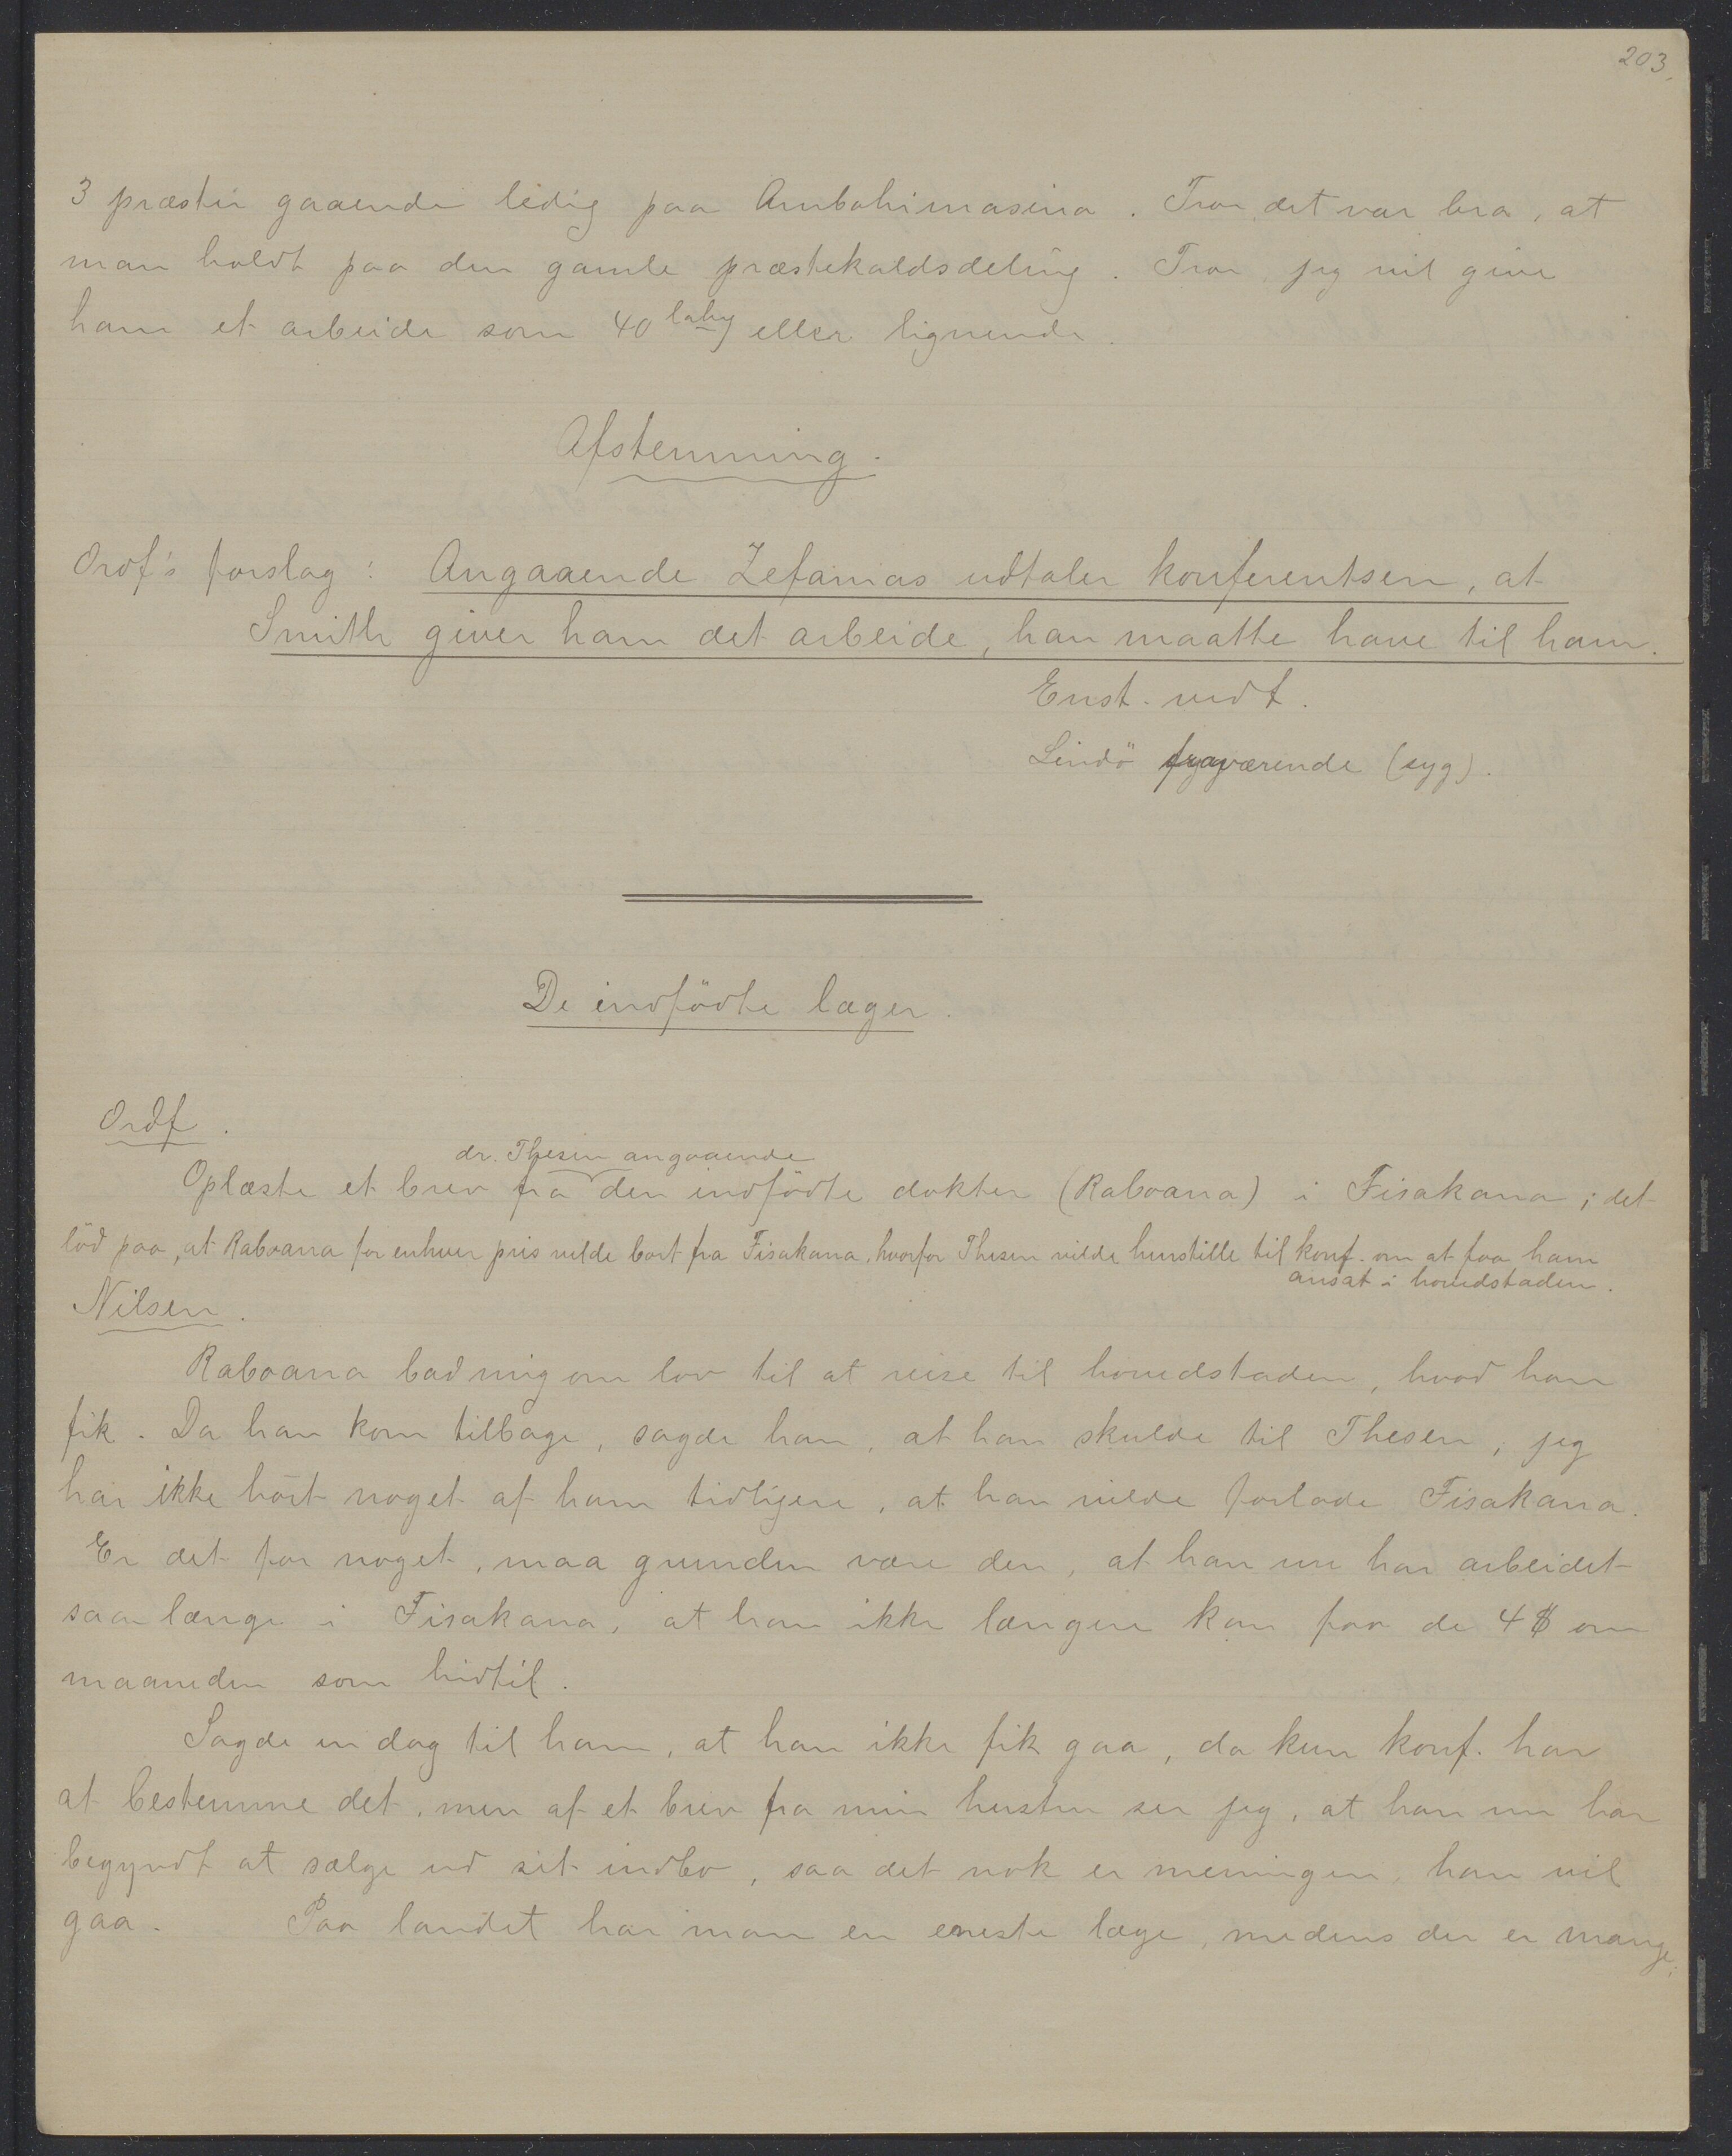 203.
3 præster gaaende ledig paa Ambohimasina. Tror det var bra, at
man holdt paa den gamle præstekaldsdeling. Tror jeg vil give
ham et arbeide som 40 lahy eller lignende.
Afstemning.
Ordf's forslag: Angaaende Zefanias udtaler konferentsen, at
Smith giver ham det arbeide, han maatte have til ham.
Enst. vedt.
Lindö fraværende (syg).
De indfödte læger.
Ordf.
Oplæste et brev fra dr. Thesen angaaende den indfödte doktor (Raboana) i Fisakana; det
löd paa, at Raboana for enhver pris vilde bort fra Fisakana, hvorfor Thesen vilde henstille til konf. om at faa ham
ansat i hovedstaden.
Nilsen.
Raboana bad mig om lov til at reise til hovedstaden, hvad han
fik. Da han kom tilbage, sagde han, at han skulde til Thesen; jeg
har ikke hört noget af ham tidligere, at han vilde forlade Fisakana.
Er det for noget, maa grunden være den, at han nu har arbeidet
saa længe i Fisakana, at han ikke længere kan faa de 4 $ om
maaneden som hidtil.
Sagde en dag til ham, at han ikke fik gaa, da kun konf. har
at bestemme det, men af et brev fra min hustru ser jeg, at han nu har
begyndt at sælge ud sit indbo, saa det nok er meningen, han vil
gaa. Paa landet har man en eneste læge, medens der er mange;